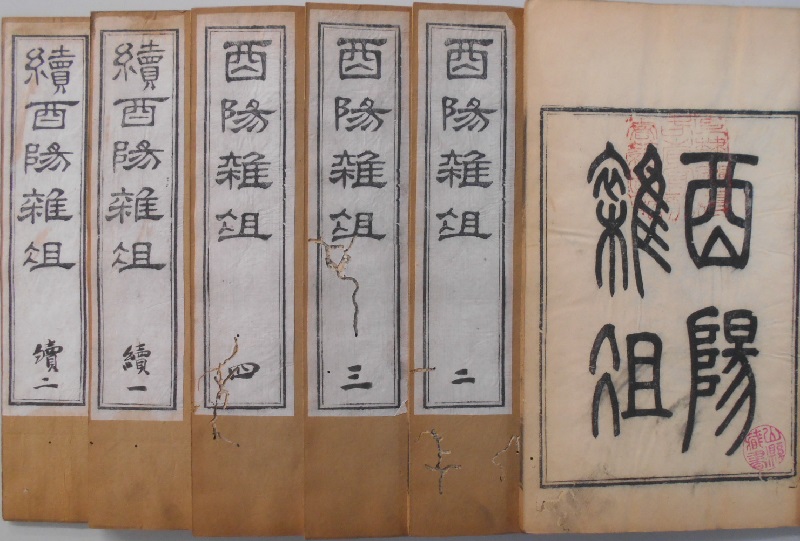 酉陽
雜俎
酉陽雜俎
二
酉陽雜俎
三
酉陽雜俎
四
續酉陽雜俎
續一
續酉陽雜俎
續二